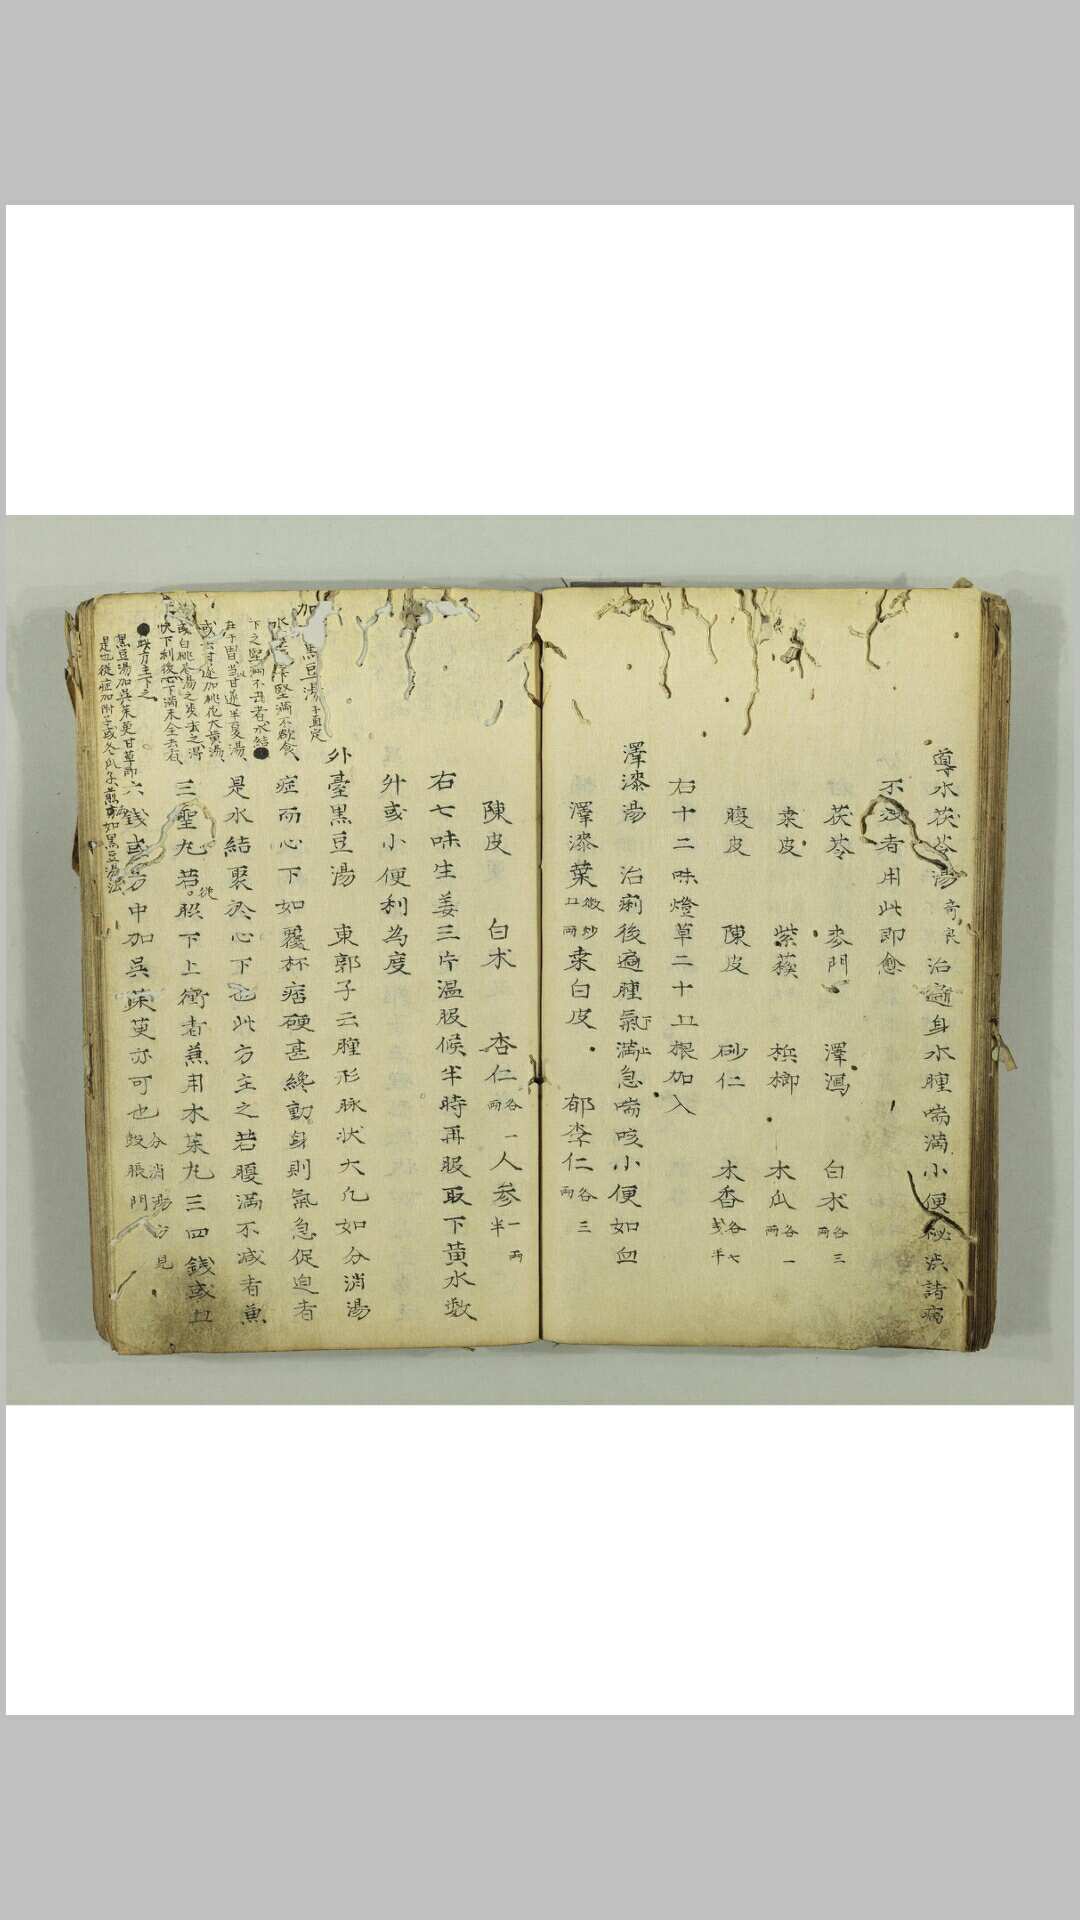 導水茯苓湯 奇良 治遍身水腫喘滿小便秘渋諸病
不効者用此即愈
茯苓 麥門 澤瀉 白朮 各三兩
桑皮 紫蘇 梹榔 木瓜 各一兩
腹皮 陳皮 砂仁 木香 各七戔半
右十二味燈草二十五根加入
澤漆湯 治痢後遍腫氣滿急喘咳小便如血
澤漆葉 微炒五兩 桒白皮 郁李仁 各三兩
陳皮 白朮 杏仁 各一兩 人参 一兩半
右七味生姜三片温服候半時再服取下黄水数
升或小便利為度
外臺黒豆湯 東郭子云腫形脉状大凢如分消湯
症而心下如覆杯痞硬甚纔動身則氣急促迫者
是水結聚於心下也此方主之若腹滿不减者兼
三聖丸若從臍下上衝者兼用木茱丸三四銭或五
六銭或方中加呉茱萸亦可也 分消湯方見鼓脹門
加 黒豆湯
堅滿不欲食
下之堅滿不 者水結
甘遂半夏湯
甘遂加桃花大黄湯
或白桃花湯之 去之得
下快下利後心下滿未全去
此方主下之
黒豆湯加呉茱萸甘草
是也從症加附子或冬瓜子 加黒豆湯